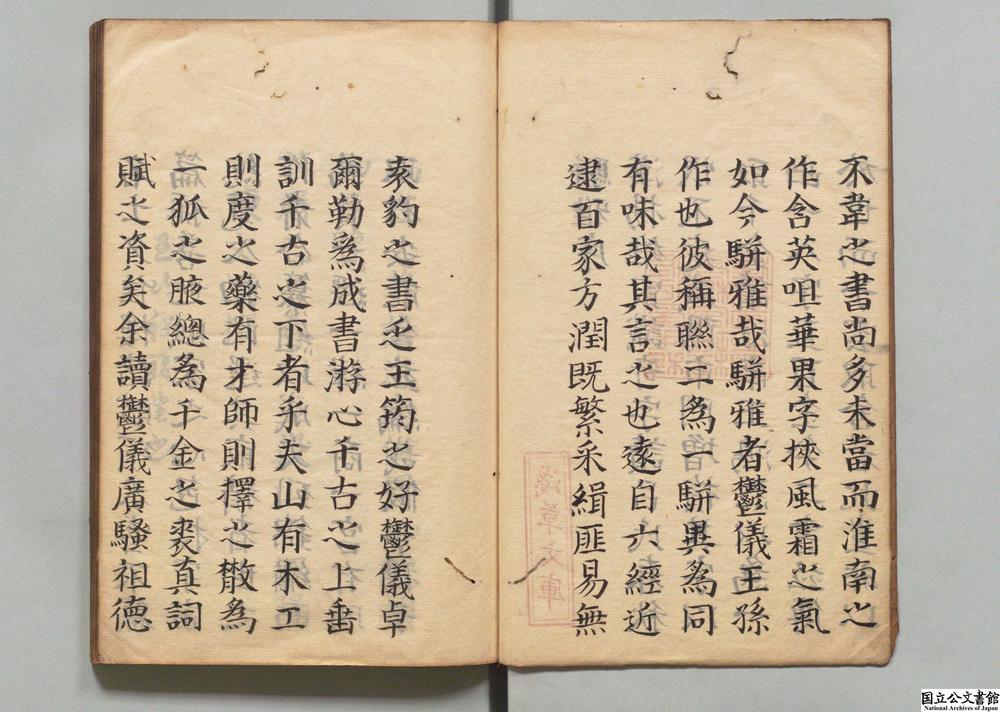 不韋之書尚多未當而淮南之
作含英咀華果字挾風霜之氣
如今駢雅哉駢雅者鬱儀王孫
作也彼稱聯二為一駢異為同
有味哉其言之也遠自六經近
逮百家方潤既繁采緝匪易無
袁豹之書乏王筠之好鬱儀卓
爾勒爲成書游心千古之上垂
訓千古之下者乎夫山有木工
則度之藥有才師則擇之散為
一狐之腋總為千金之裘真詞
賦之資矣余讀鬱儀廣騷祖德
淺草文庫
国立公文書館
National Archives of Japan